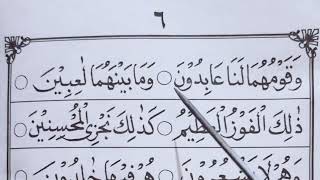 ٦
وَقَوْمُهُمَا لَنَا عَابِدُوْنَ ○ وَمَا بَيْنَهُمَا لٰعِبِيْنَ ○
ذٰلِكَ الْفَوْزُ الْعَظِيْمُ ○ كَذٰلِكَ نَجْزِي الْمُحْسِنِيْنَ ○
وَهُمْ لَا يَشْعُرُوْنَ ○ هُمْ فِيْهَا خٰلِدُوْنَ ○